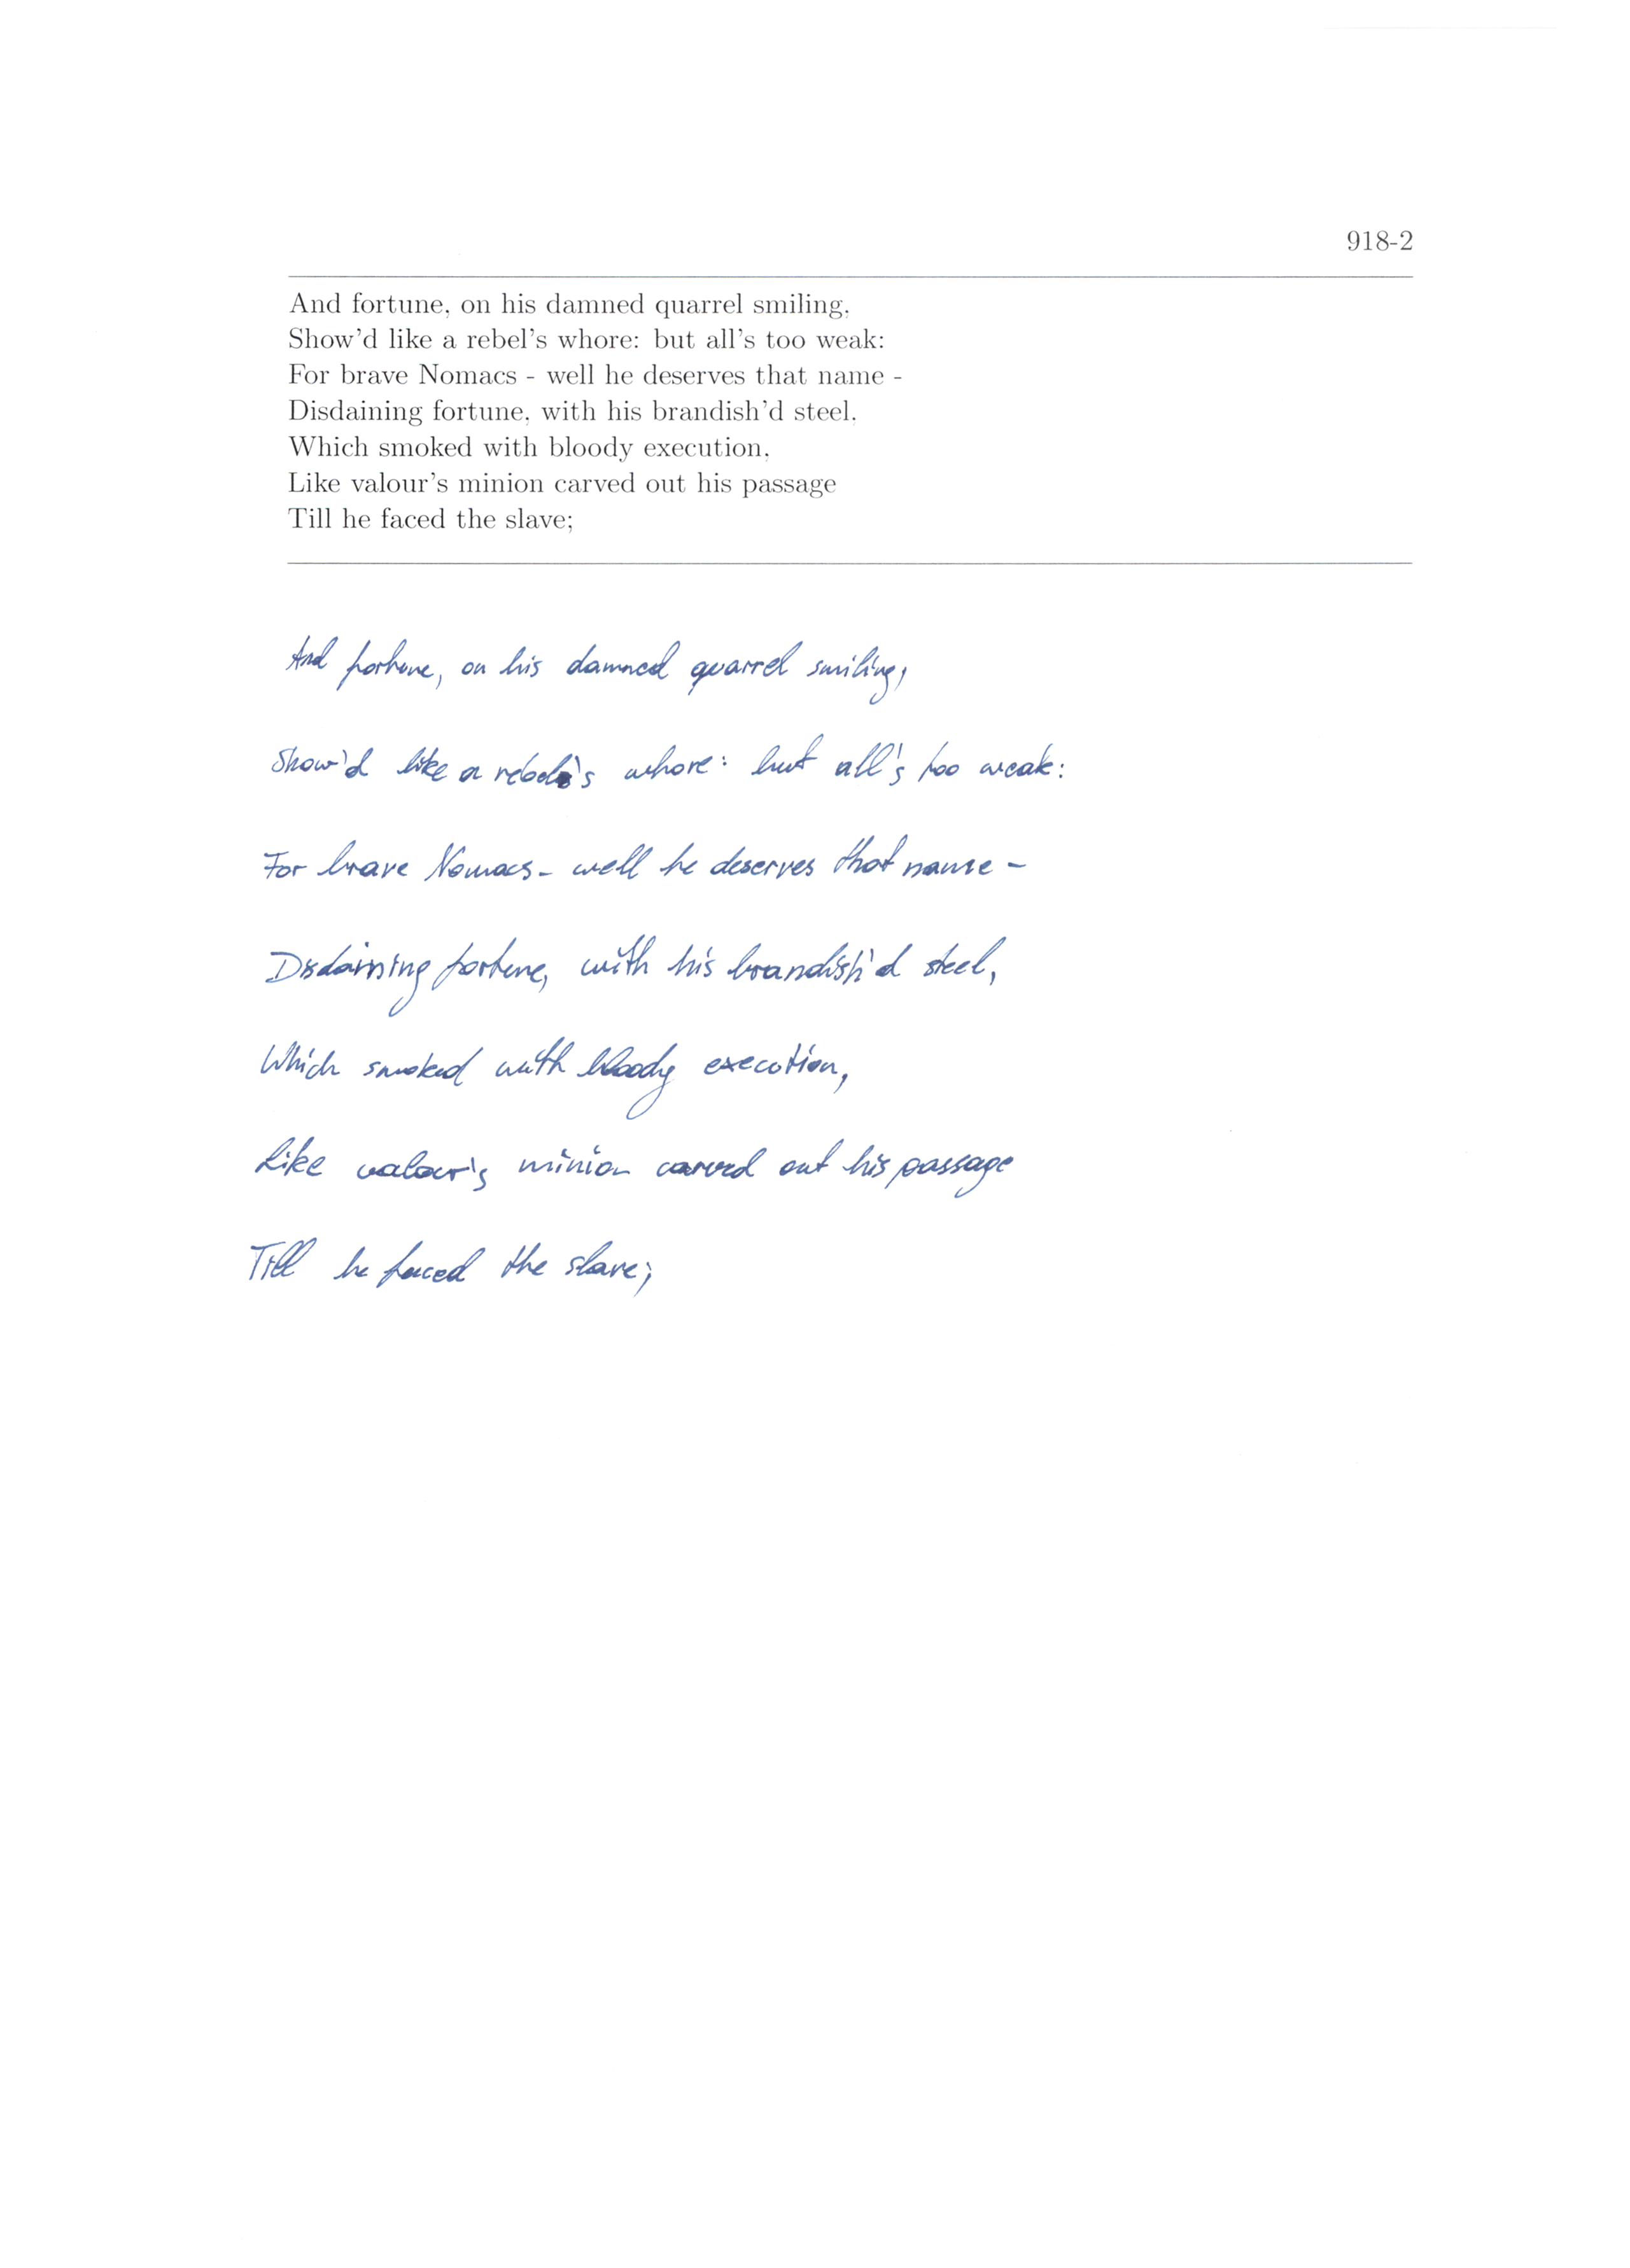 918-2
And fortune, on his damned quarrel smiling,
Show'd like a rebel's whore: but all's too weak:
For brave Nomacs - well he deserves that name -
Disdaining fortune, with his brandish'd steel,
Which smoked with bloody execution,
Like valour's minion carved out his passage
Till he faced the slave;
And fortune, on his damned quarrel smiling,
Show'd like a rebel's whore: but all's too weak:
For brave Nomacs - well he deserves that name -
Disdaining fortune, with his brandish'd steel,
Which smoked with bloody execution,
Like valour's minion carved out his passage
Till he faced the slave;